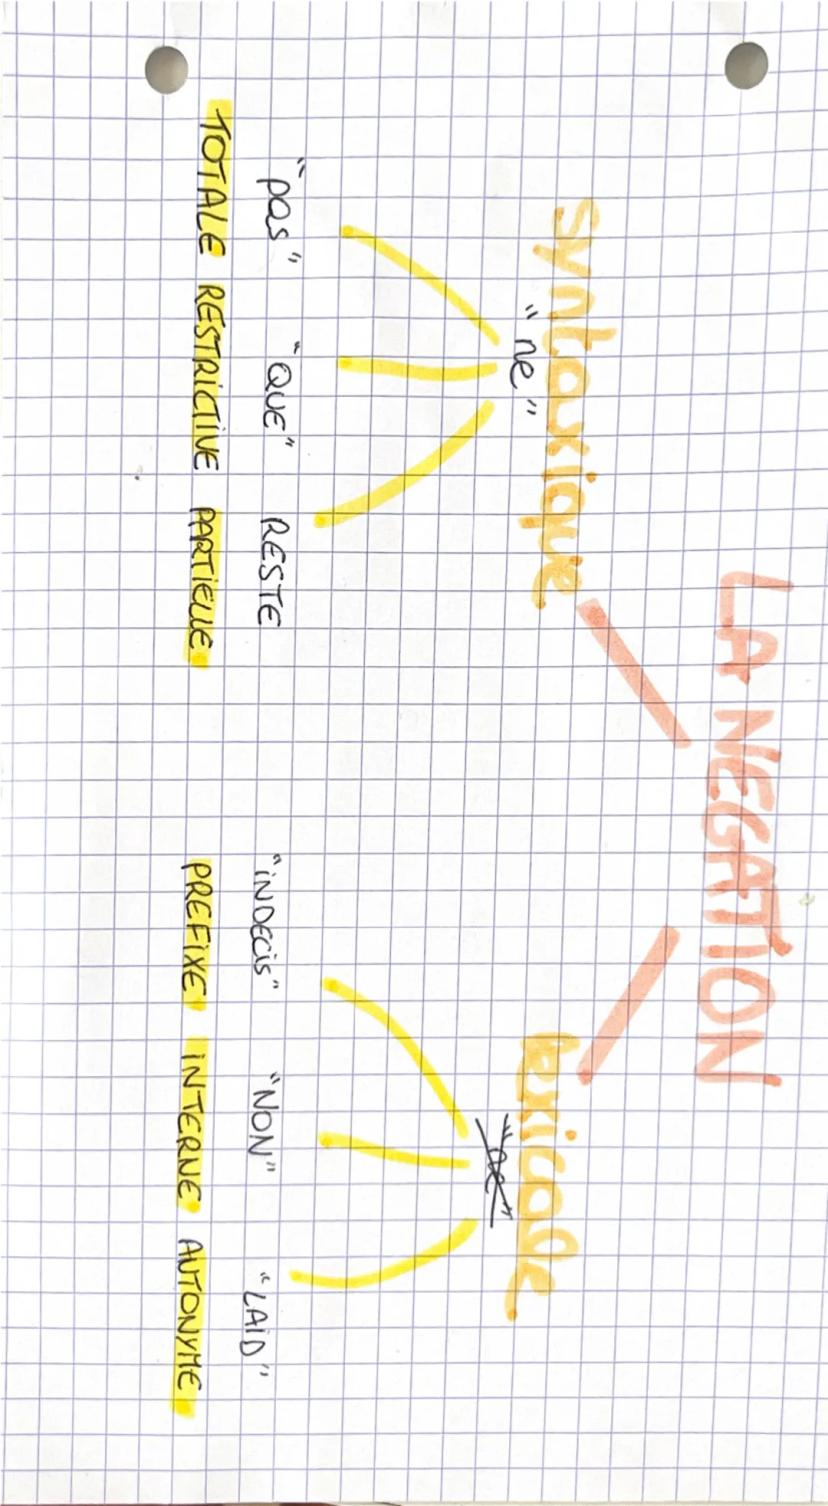 LA NEGATION
syntaxique lexicale
"ne" "ne"
"pas" "QUE" RESTE "iNDECis" "NON" "LAiD"
TOTALE RESTRICTIVE PARTIELLE PREFIXE INTERNE AUTONYME